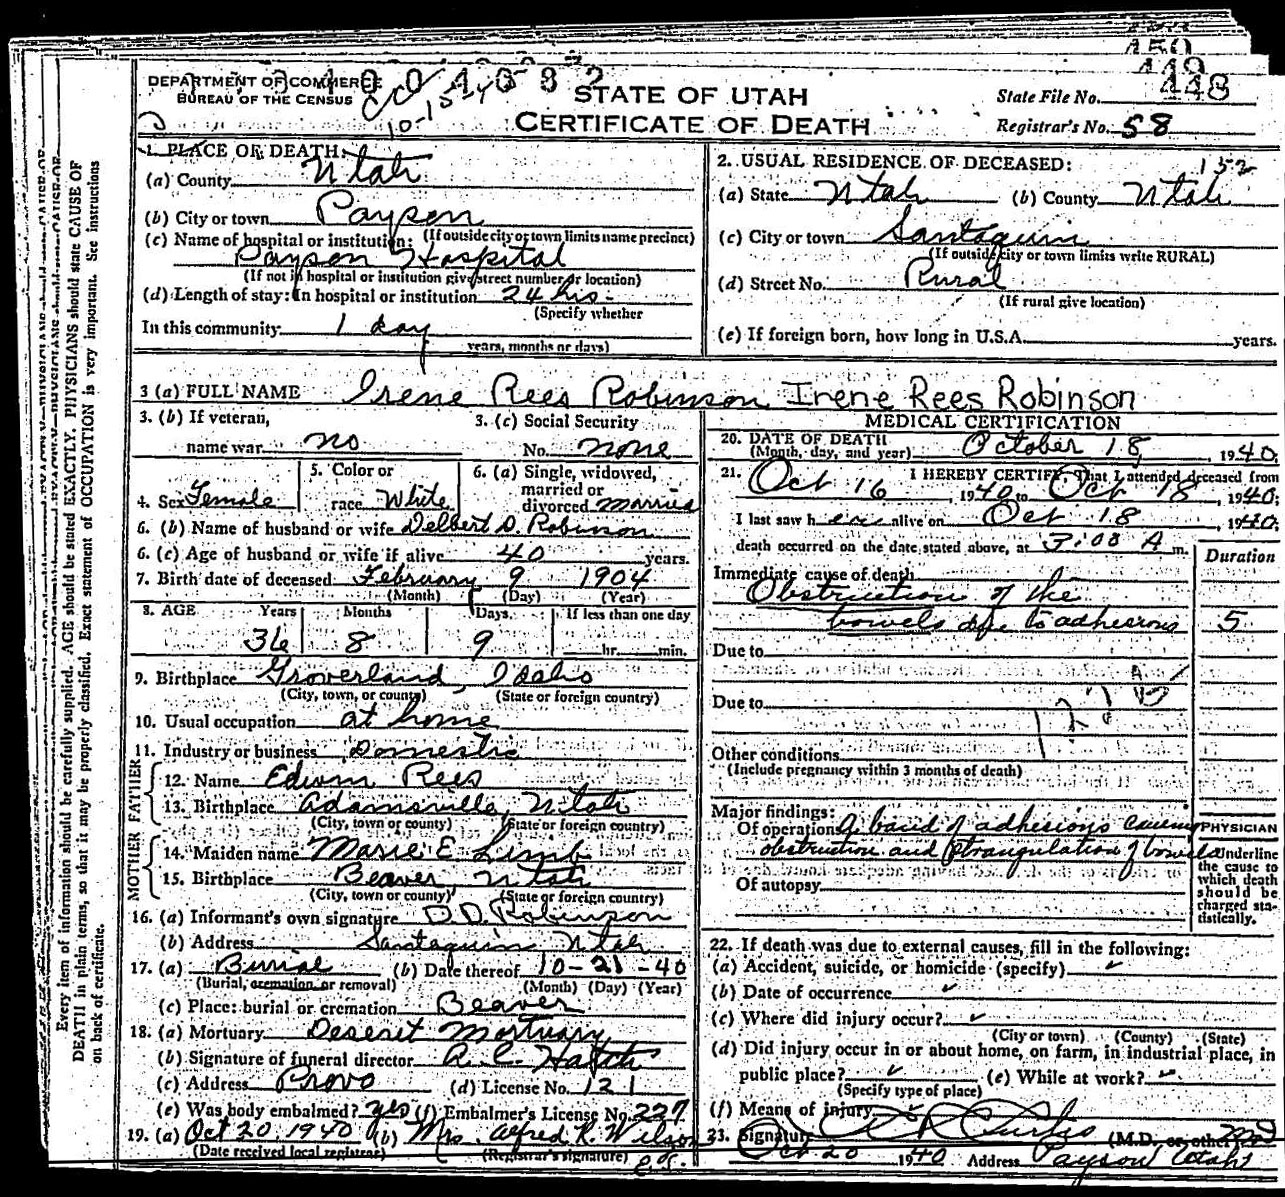 450
449
448
1004082
DEPARTMENT OF COMMERCE
BUREAU OF THE CENSUS
STATE OF UTAH
CERTIFICATE OF DEATH
State File No.
Registrar's No. 58
1. PLACE OF DEATH:
(a) County Utah
(b) City or town Payson
(If outside city or town limits name precinct)
(c) Name of hospital or institution:
Payson Hospital
(If not in hospital or institution give street number or location)
(d) Length of stay: In hospital or institution 24 hrs.
(Specify whether
In this community 1 day
years, months or days)
2. USUAL RESIDENCE OF DECEASED: 132
(a) State Utah (b) County Utah
(c) City or town Santaquin
(If outside city or town limits write RURAL)
(d) Street No. Rural
(If rural give location)
(e) If foreign born, how long in U.S.A. years.
3 (a) FULL NAME Irene Rees Robinson Irene Rees Robinson
3. (b) If veteran,
name war no
3. (c) Social Security
No. none
4. Sex Female
5. Color or
race White
6. (a) Single, widowed,
married or
divorced married
6. (b) Name of husband or wife Delbert D. Robinson
6. (c) Age of husband or wife if alive 40 years.
7. Birth date of deceased February 9 1904
(Month) (Day) (Year)
8. AGE Years Months Days If less than one day
36 8 9 hr. min.
9. Birthplace Groverland, Idaho
(City, town, or county) (State or foreign country)
10. Usual occupation at home
11. Industry or business Domestic
FATHER
12. Name Edwin Rees
13. Birthplace Adamsville Utah
(City, town or county) (State or foreign country)
MOTHER
14. Maiden name Marie E Limb
15. Birthplace Beaver Utah
(City, town or county) (State or foreign country)
16. (a) Informant's own signature D.D. Robinson
(b) Address Santaquin Utah
17. (a) Burial (b) Date thereof 10-21-40
(Burial, cremation or removal) (Month) (Day) (Year)
(c) Place: burial or cremation Beaver
18. (a) Mortuary Deseret Mortuary
(b) Signature of funeral director A. C. Hatch
(c) Address Provo (d) License No. 121
(e) Was body embalmed? yes (f) Embalmer's License No. 227
19. (a) Oct 20 1940 (b) Mrs. Alfred R. Wilson
(Date received local registrar) (Registrar's signature)
MEDICAL CERTIFICATION
20. DATE OF DEATH
(Month, day, and year) October 18, 1940.
21. I HEREBY CERTIFY, That I attended deceased from
Oct 16 1940 to Oct 18 1940;
I last saw her alive on Oct 18, 1940;
death occurred on the date stated above, at 3:08 A m.
Duration
Immediate cause of death
Obstruction of the
bowels due to adhesions 5
Due to
Due to
Other conditions
(Include pregnancy within 3 months of death)
Major findings:
Of operations A band of adhesions causing
obstruction and strangulation of bowels
Of autopsy
PHYSICIAN
Underline
the cause to
which death
should be
charged sta-
tistically.
22. If death was due to external causes, fill in the following:
(a) Accident, suicide, or homicide (specify)
(b) Date of occurrence
(c) Where did injury occur?
(City or town) (County) (State)
(d) Did injury occur in or about home, on farm, in industrial place, in
public place? (e) While at work?
(Specify type of place)
(f) Means of injury
23. Signature Curtis (M.D., or other) MD
Oct 20 1940 Address Payson Utah
Every item of information should be carefully supplied. AGE should be stated EXACTLY. PHYSICIANS should state CAUSE OF
DEATH in plain terms, so that it may be properly classified. Exact statement of OCCUPATION is very important. See instructions
on back of certificate.